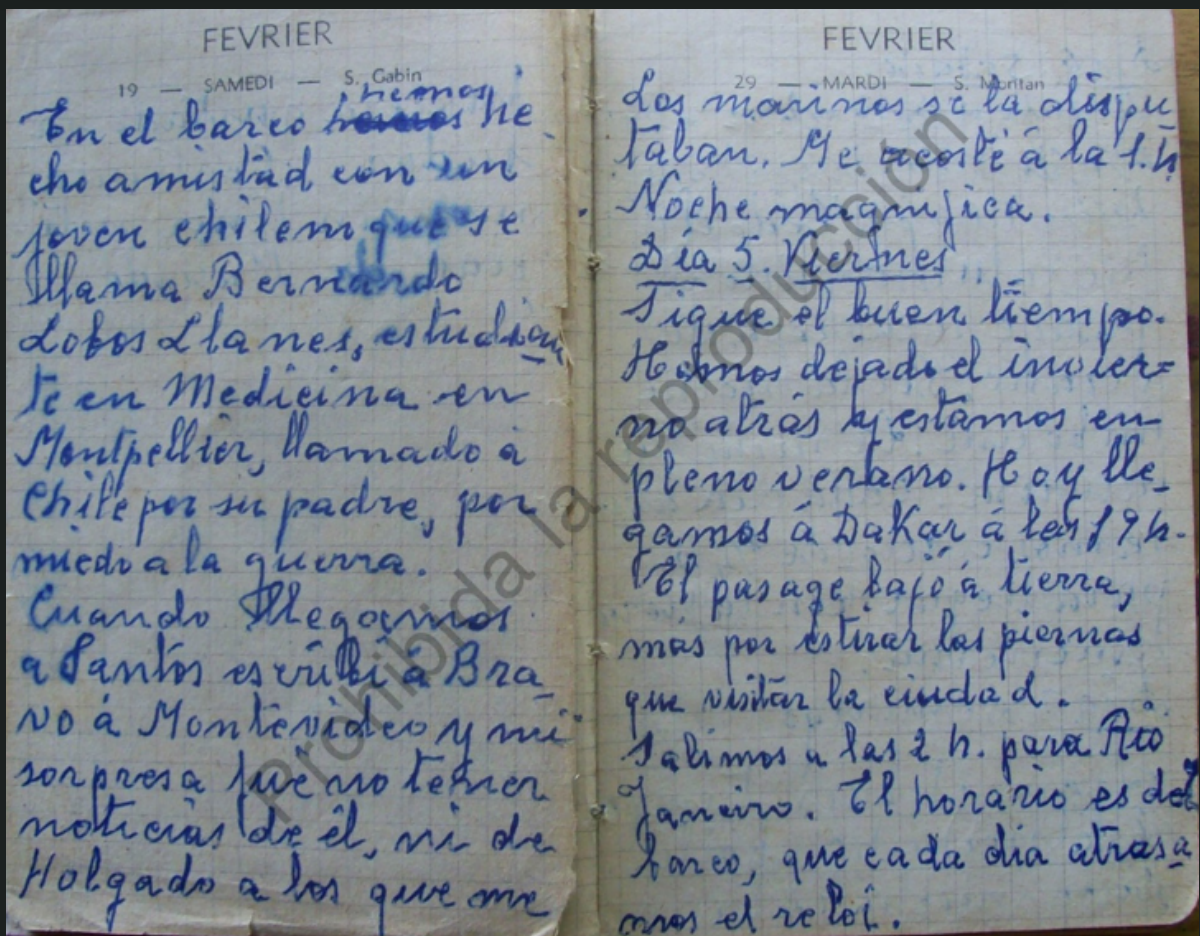 FEVRIER
19 — SAMEDI — S. Gabin
hemos
En el barco hemos he
cho amistad con un
joven chileno que se
llama Bernardo
Lobos Llanes, estudian
te en Medicina en
Montpellier, llamado á
Chile por su padre, por
miedo a la guerra.
Cuando llegamos
a Santos escribí á Bra_
vo á Montevideo y mi
sorpresa fue no tener
noticias de él, ni de
Holgado a los que me
FEVRIER
29 — MARDI — S. Montan
Los marinos se la dispu_
taban. Me acosté á la 1. h
Noche magnifica.
Día 5. Viernes
Sigue el buen tiempo.
Hemos dejado el invier=
no atrás y estamos en
pleno verano. Hoy lle_
gamos á Dakar á las 19 h.
El pasage bajó á tierra,
más por estirar las piernas
que visitar la ciudad.
Salimos a las 2 h. para Rio
Janeiro. El horario es del
barco, que cada dia atrasa
mos el reloi.
Prohibida la reproducción